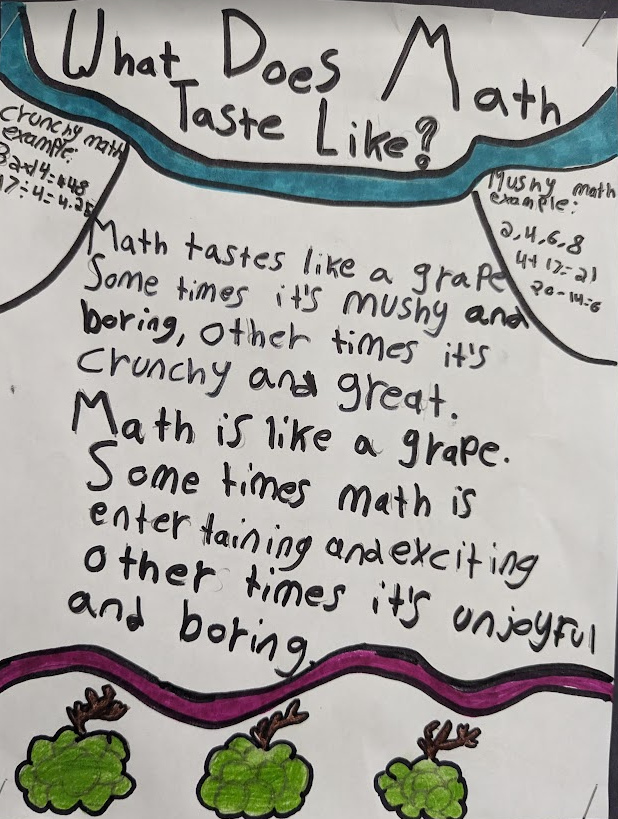 What Does Math
Taste Like?
Crunchy math
example:
17÷4=4.25
Mushy math
example:
2,4,6,8
4+17=21
20-14=6
Math tastes like a grape
Some times it's mushy and
boring, other times it's
crunchy and great.
Math is like a grape.
Some times math is
enter taining and exciting
other times it's unjoyful
and boring.